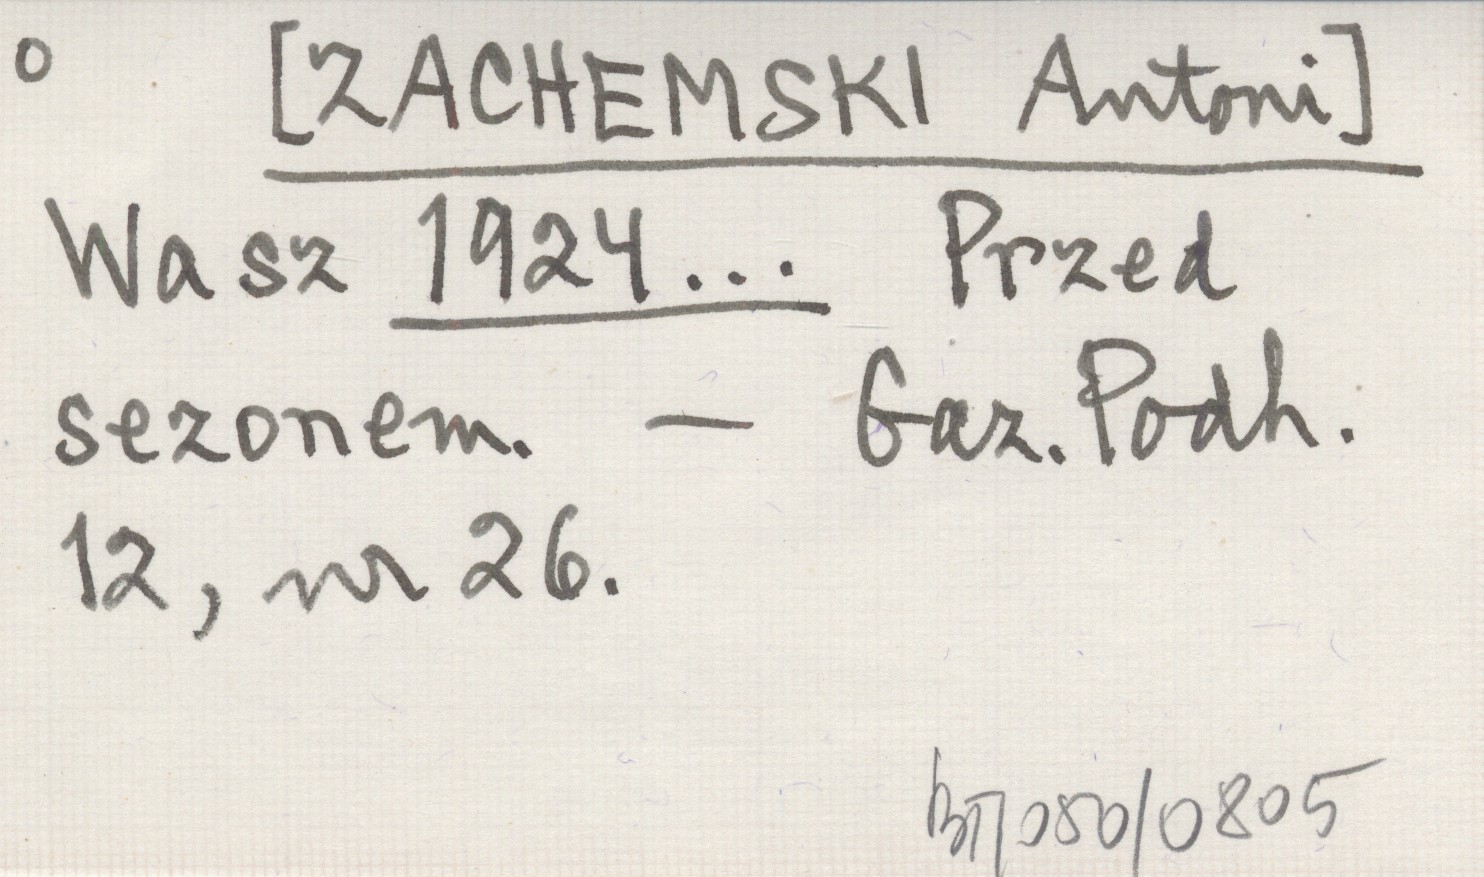 o [ZACHEMSKI Antoni]
Wasz 1924... Przed
sezonem. — Gaz. Podh.
12, nr 26.